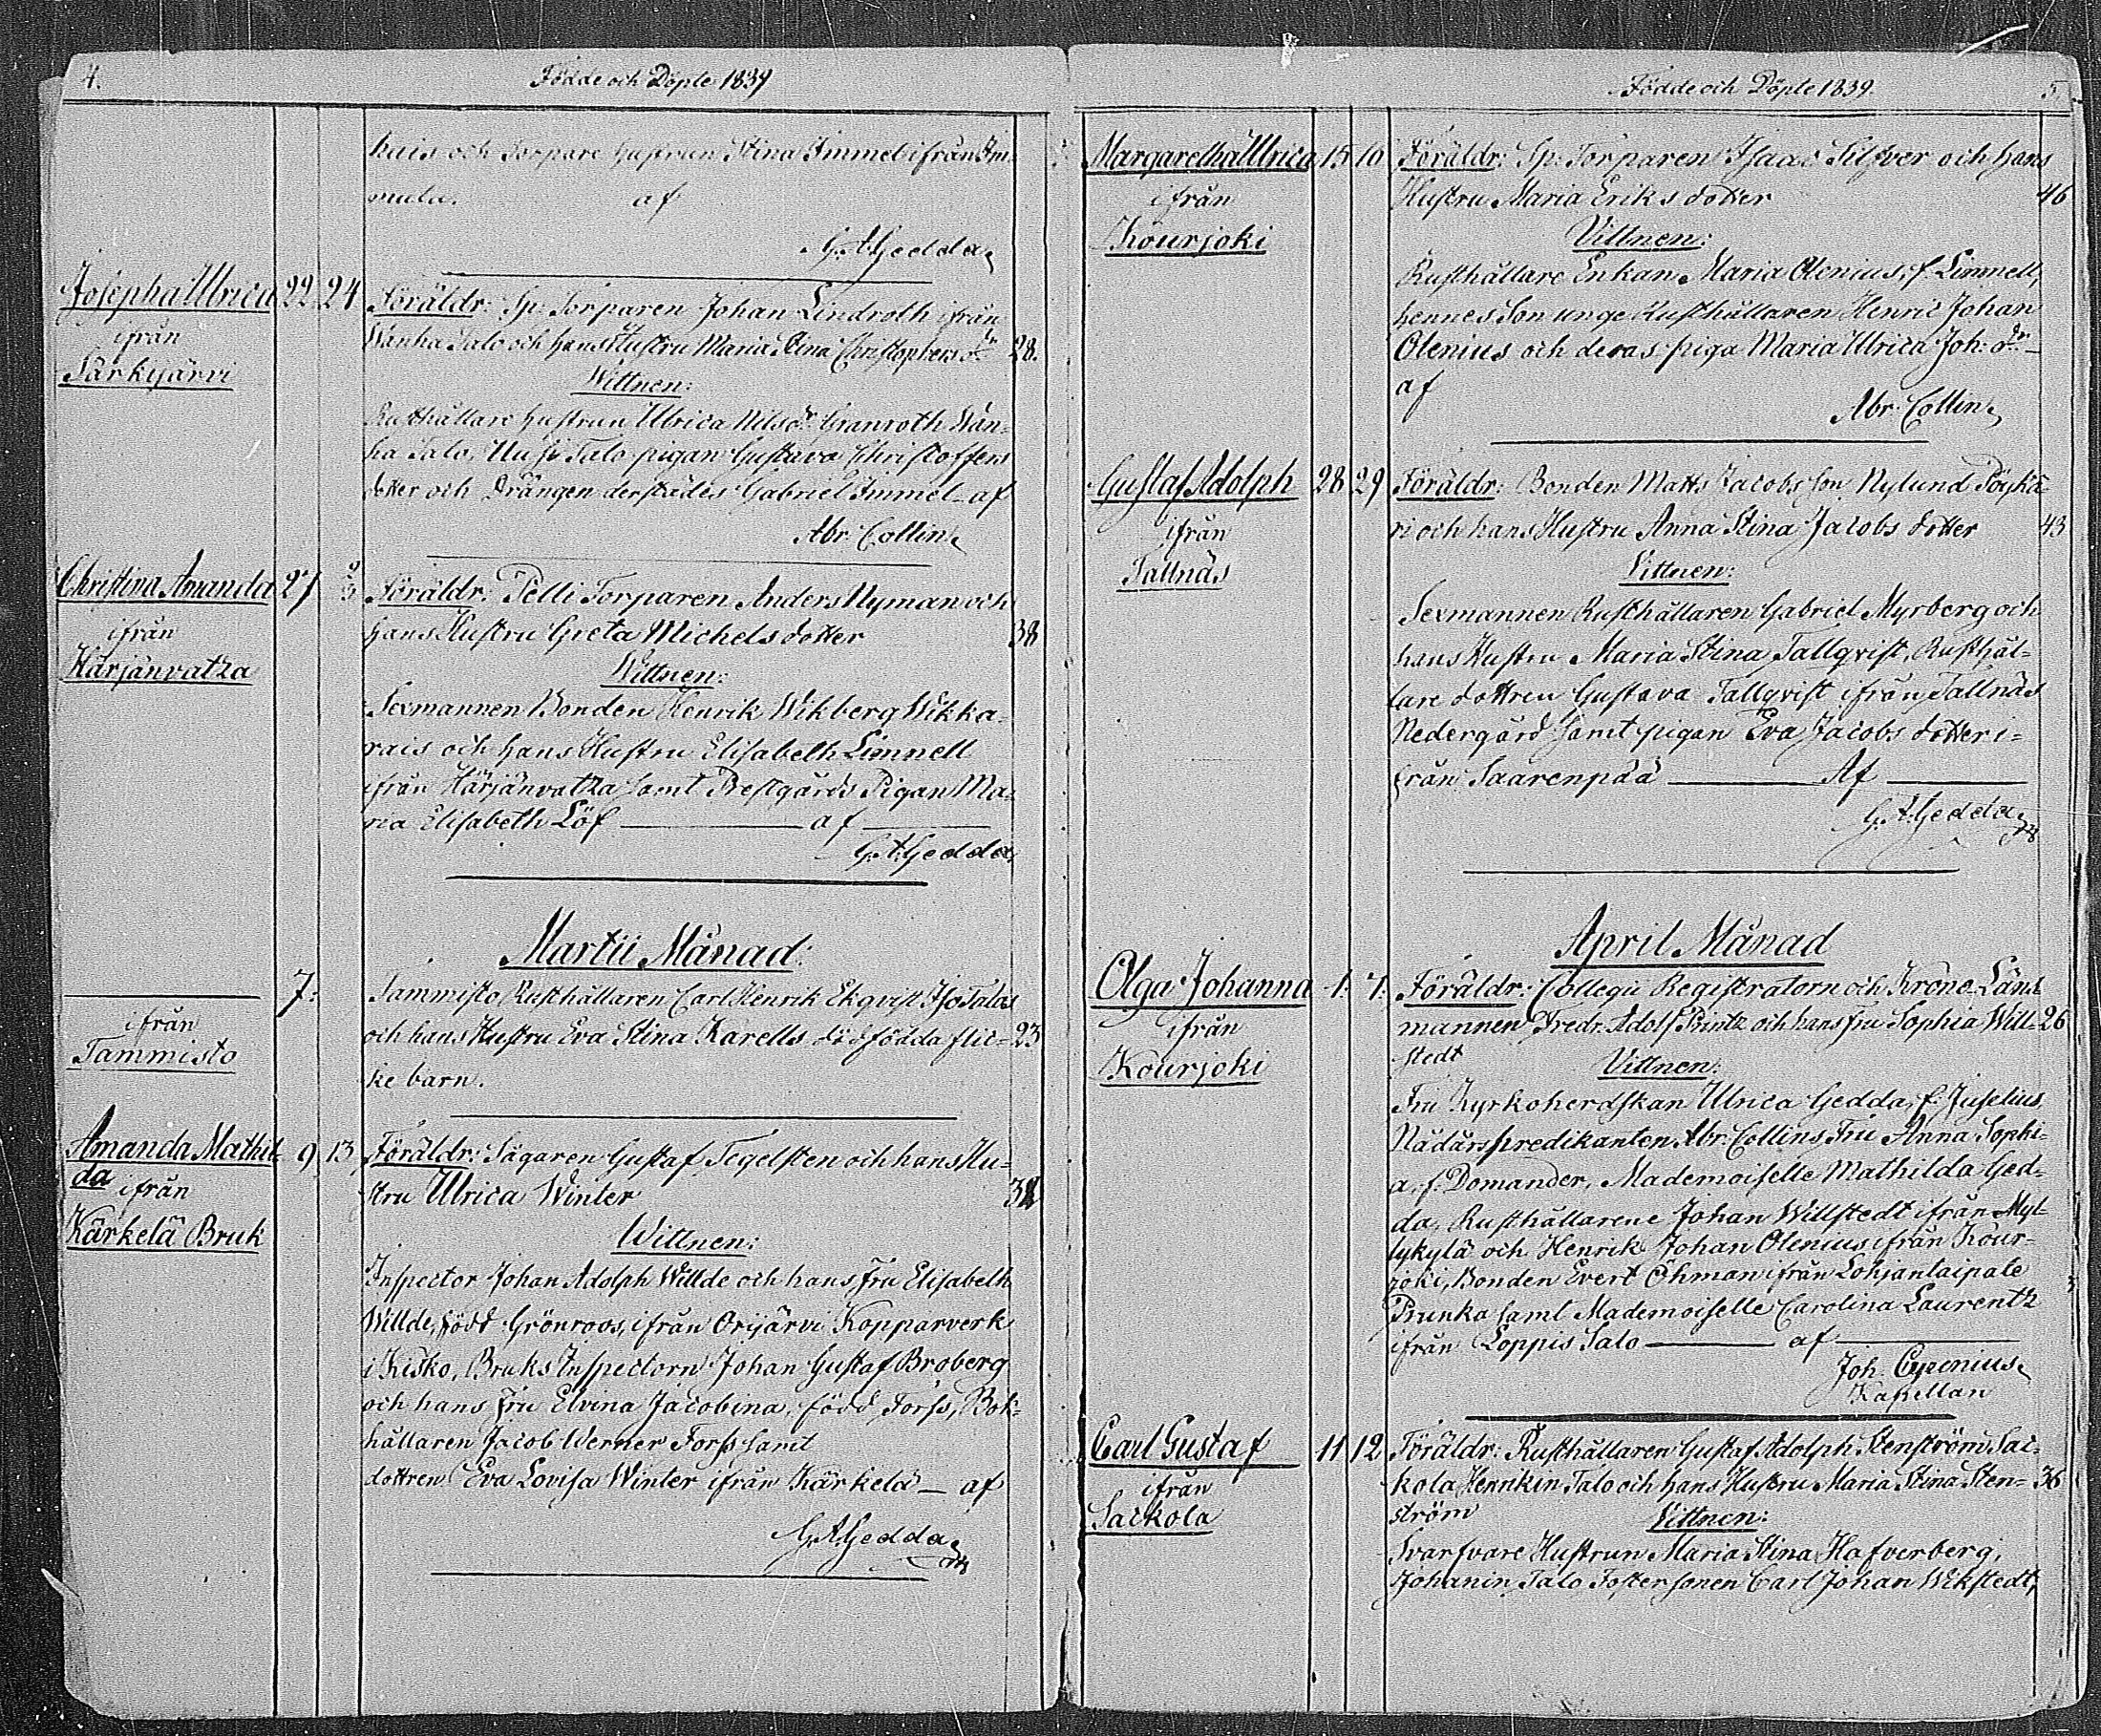 4.
Födde och Döpte 1839
hais och Torpare hustrun Stina Immel ifrån Im-
mula. af
G. A. Gedda
Josepha Ulrica 22. 24 Föräldr: Sp: Torparen Johan Lindroth ifrån
ifrån Wanha Talo och hans Hustru Maria Stina Christophers dr 28.
Särkijärvi
Wittnen:
Rusthållare hustrun Ulrica Nilsdr Granroth Wan-
ha Talo, Uusi Talo pigan Gustava Christoffers
dotter och Drängen derstädes Gabriel Immel af
Abr. Collin
Christina Amanda 27 Föräldr: Pelli Torparen Anders Nyman och
ifrån hans Hustru Greta Michelsdotter 38
Härjänvatza
Wittnen:
Sexmannen Bonden Henrik Wikberg Wikka-
rais och hans Hustru Elisabeth Limnell
ifrån Härjänvatza samt Prestgårds Pigan Ma-
ria Elisabeth Löf af
G. A. Gedda
Martii Månad:
7. Tammisto, Rusthållaren Carl Henrik Ekqvist Iso Talos
ifrån och hans Hustru Eva Stina Karells dödfödda flic- 23
Tammisto ke barn.
Amanda Mathil- 9 13 Föräldr: Sågaren Gustaf Tegelsten och hans Hu-
da ifrån stru Ulrica Winter
Kärkelä Bruk
Wittnen:
Inspector Johan Adolph Willde och hans Fru Elisabeth
Willde, född Grönroos, ifrån Orijärvi Kopparverk
i Kisko, Bruks Inspectorn Johan Gustaf Broberg
och hans Fru Elvina Jacobina, född Forss, Bok-
hållaren Jacob Werner Forss samt
dottren Eva Lovisa Winter ifrån Kärkelä af
G. A. Gedda
Födde och Döpte 1839. 5
Margaretha Ulrica 15 16 Föräldr: Sp: Torparen Isaac Silfver och hans
ifrån Hustru Maria Eriksdotter 46
Kourjoki
Vittnen:
Rusthållare Enkan Maria Olenius, f. Limnell,
hennes Son unge Rusthållaren Henric Johan
Olenius och deras piga Maria Ulrica Joh: dr
af
Abr. Collin
Gustaf Adolph 28 29 Föräldr: Bonden Matts Jacobsson Nylund Pöyhä-
ifrån ri och hans Hustru Anna Stina Jacobsdotter 43
Tallnäs
Vittnen:
Sexmannen Rusthållaren Gabriel Myrberg och
hans Hustru Maria Stina Tallqvist, Rusthål-
lare dottren Gustava Tallqvist ifrån Tallnäs
Nedergård samt pigan Eva Jacobsdotter i-
från Saarenpää Af
G. A. Gedda
April Månad
Olga Johanna 1. 7. Föräldr: Collegii Registratorn och Krono Läns
ifrån mannen Fredr. Adolf Printz och hans Fru Sophia Will- 26
Kourjoki stedt
Vittnen:
Fru Kyrkoherdskan Ulrica Gedda, f. Juselius,
Nådårspredikanten Abr. Collins Fru Anna Sophi-
a, f. Domander, Mademoiselle Mathilda Ged-
da, Rusthållarene Johan Willstedt ifrån Myl-
lykylä och Henrik Johan Olenius ifrån Kour-
joki, Bonden Evert Öhman ifrån Lohjantaipale
Prunka samt Mademoiselle Carolina Laurentz
ifrån Loppis Salo af
Joh. Cyrenius
Kapellan
Carl Gustaf 11 12 Föräldr: Rusthållaren Gustaf Adolph Stenström Sai-
ifrån kola Hennkin Talo och hans Hustru Maria Stina Sten- 36
Saikola ström
Vittnen:
Svarfvare Hustrun Maria Stina Hafverberg,
Johanin Talo Fostersonen Carl Johan Wikstedt,